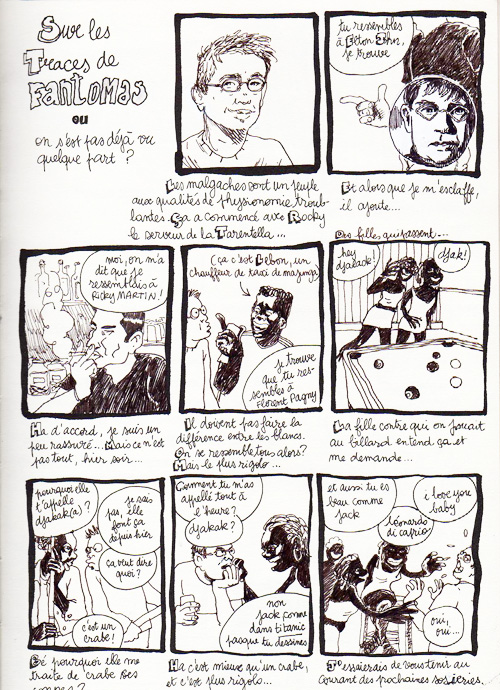 Sur les
Traces de
Fantomas
ou
on s'est pas déjà vu
quelque part ?
tu ressembles
à Elton John,
je trouve
Les malgaches sont un peuple
aux qualités de physionomie troub-
lantes. Ça a commencé avec Rocky
le serveur de la Tarentella...
Et alors que je m'esclaffe,
il ajoute...
moi, on m'a
dit que je
ressemblais à
RICKY MARTIN !
Ha d'accord, je suis un
peu rassuré... Mais ce n'est
pas tout, hier soir...
(ça c'est Lebon, un
chauffeur de taxi de majunga
je trouve
que tu res-
sembles à
Florent Pagny
Ils doivent pas faire la
différence entre les blancs.
On se ressemble tous alors?
Mais le plus rigolo...
Des filles qui passent...
hey
djakack!
djak!
La fille contre qui on jouait
au billard entend ça et
me demande...
pourquoi elle
t'appelle
djakak(a) ?
je sais
pas, elle
font ça
depuis hier
ça veut dire
quoi ?
c'est un
crabe !
Bé pourquoi elle me
traite de crabe
Comment tu m'as
appellé tout à
l'heure ?
djakak ?
non
Jack comme
dans titanic
pasque tu dessines
Ha c'est mieux qu'un crabe,
et c'est plus rigolo...
et aussi tu es
beau comme
Jack
léonardo
di caprio
i love you
baby
oui,
oui...
J'essaierais de vous tenir au
courant des prochaines sosieries.